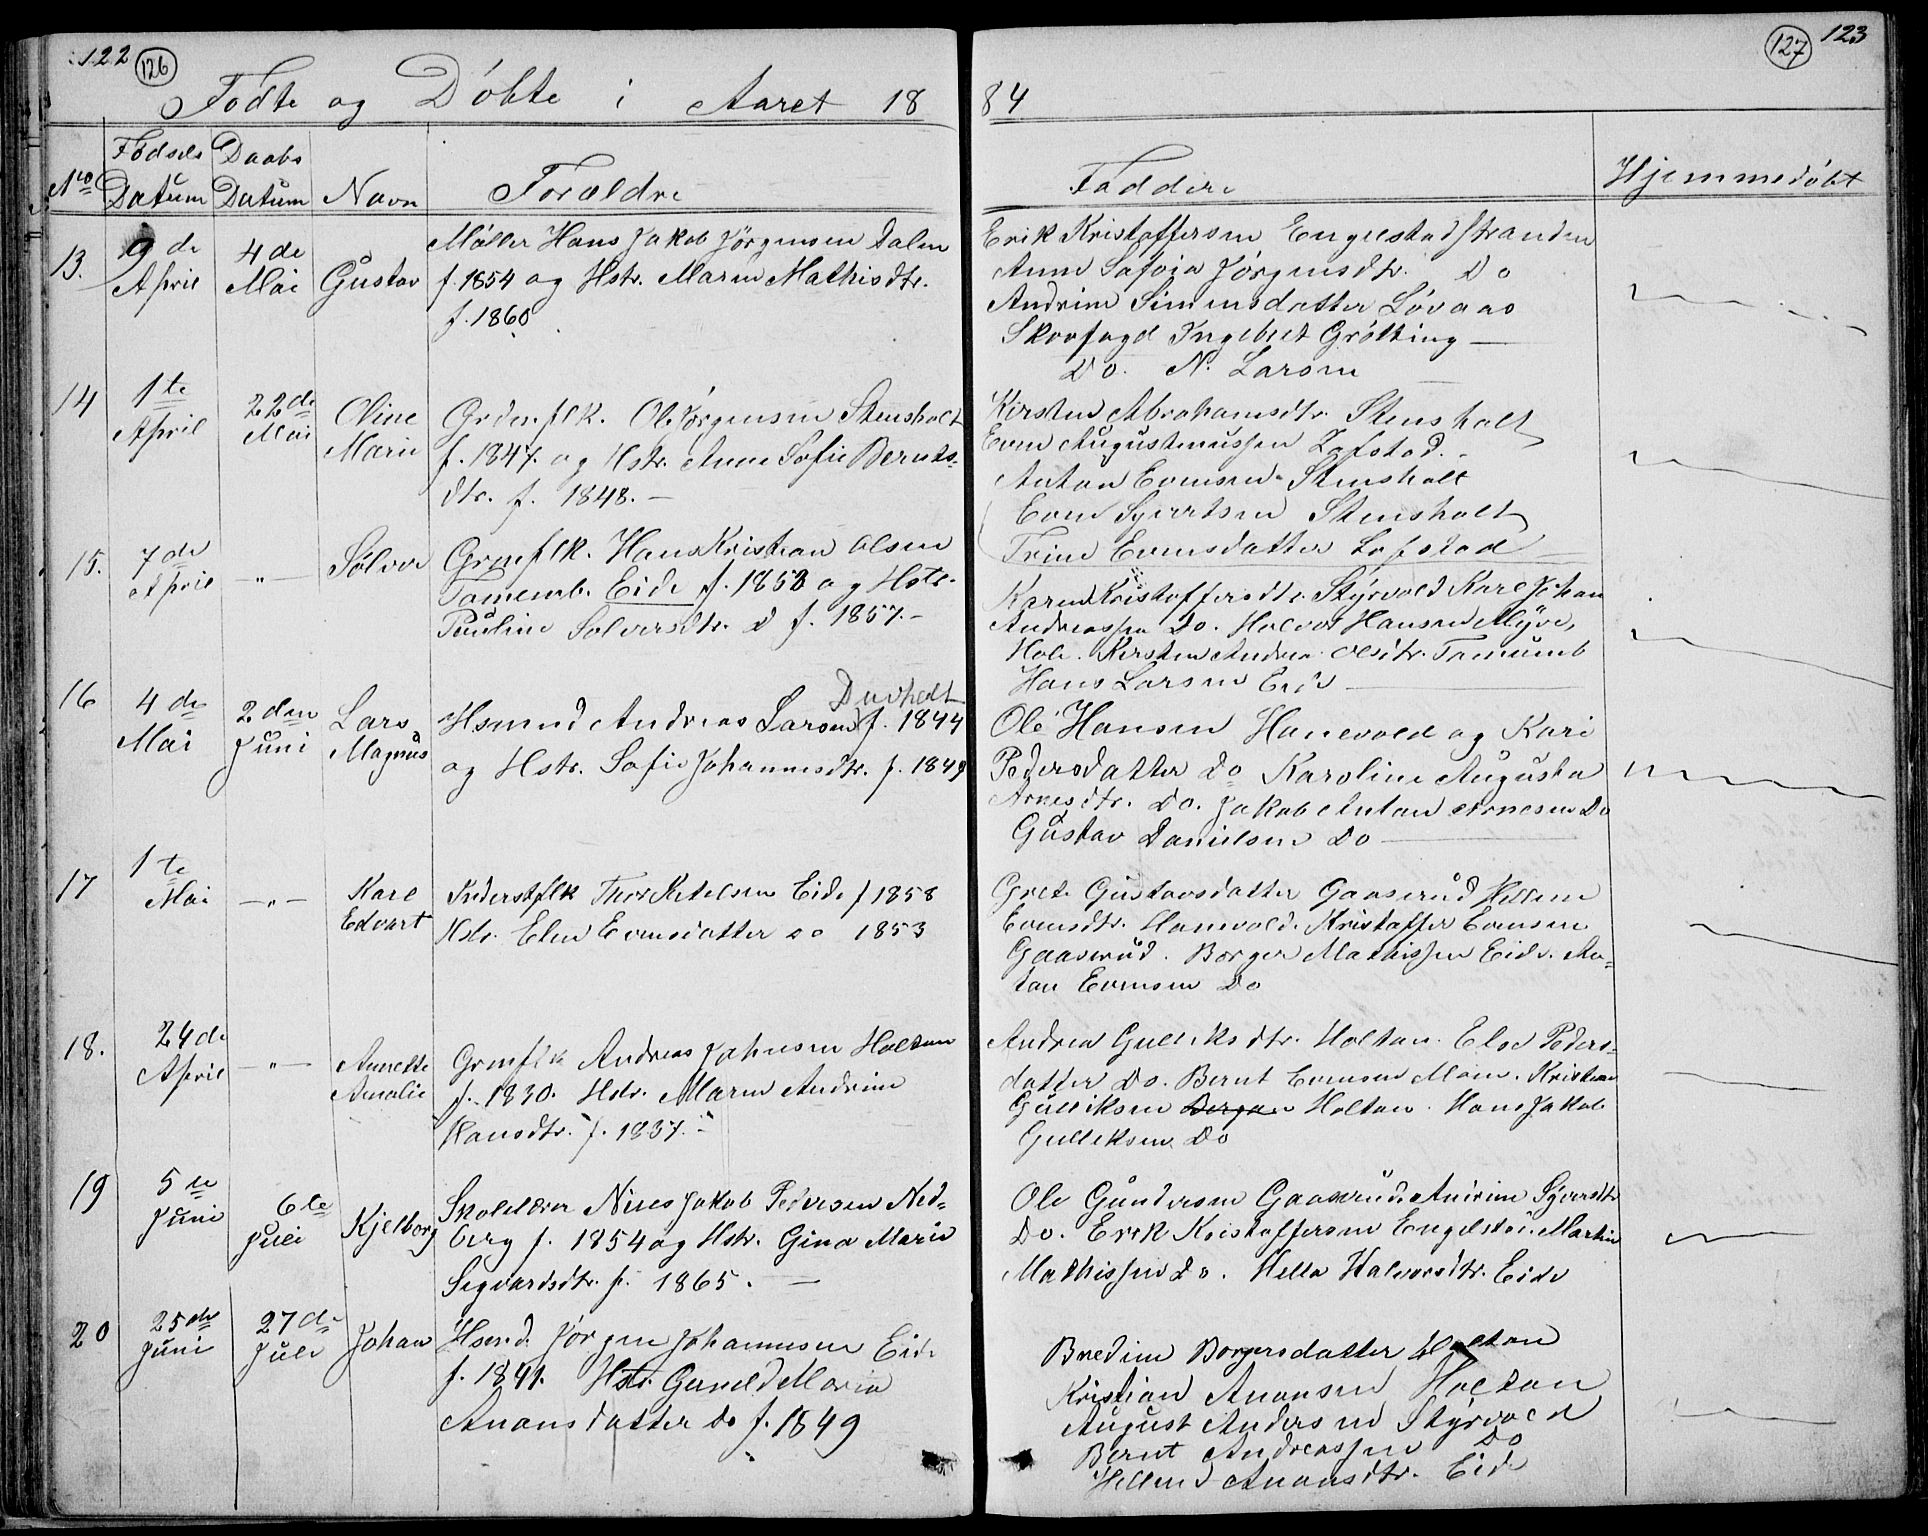 122 126
Fødte og Døbte i Aaret 18
No Fødsels Datum Daabs Datum Navn Forældre
13. 9de April 4de Mai Gustav Møller Hans Jakob Jørgensen Dalen
f. 1854 og Hstr. Maren Mathisdtr.
f. 1860
14 1te April 22de Mai Oline Marie Grdm. flk. Ole Jørgensen Stensholt
f. 1847. og Hstr. Anne Sofie Bernts-
dtr. f. 1848. —
15. 7de April — " — Sølver Grmflk. Hans Kristian Olsen
Eide f. 1858 og Hstr.
Pauline Solversdtr. d f. 1857. –
16 4de Mai 2den Juni Lars Magnus Hsmnd Andreas Larsen f. 1844
og Hstr. Sofie Johannesdtr. f. 1849
17 1te Mai — " — Karl Edvart Inderstflk Thor Ketelsen Eide f 1858
Hstr. Elen Evensdatter do 1853
18. 24de April — " — Annette Amalie Grmflk Andreas Johnsen Holtan
f. 1830. Hstr. Maren Andrine
Hansdtr. f. 1837. –
19 5te Juni 6te Juli Kjelborg Skolelærer Niels Jakob Pedersen Ned-
berg f. 1854 og Hstr. Gina Marie
Segvardsdtr. f. 1865. —
20 25de Juni 27de Juli Johan Hsmd. Jørgen Johannesen Eide
f. 1841. Hstr Gunild Maria
Anonsdatter do f. 1849
127 123
84
Faddere Hjemmedøbt
Erik Kristoffersen Engelstadstranden
Anne Sofvia Jørgensdtr. Do
Andrine Simensdatter Løvaas
Skovfogd Ingebret Grøtting —
Do. N. Larsen
Kirsten Abrahamsdtr. Stensholt
Even Augustinussen Lofstad.
Anton Evensen Stensholt
Even Syvertsen Stensholt
Trine Evensdatter Lofstad
Karen Kristoffersdtr. Styrvold Karl Johan
Andreassen Do. Halvor Hansen Myre,
Hole. Kirsten Andrea Olsdtr.
Hans Larsen Eide —
Ole Hansen Hanevold og Kari
Pedersdatter do Karoline Augusta
Arnesdtr. Do. Jakob Anton Arnesen Do
Gustav Danielsen Do —
Grete Gustavsdatter Gaaserud Hellene
Evensdtr. Hanevold. Kristoffer Evensen
Gaaserud. Borger Mathissen Eide. An-
ton Evensen Do
Andrea Gulliksdtr. Holtan. Else Peders-
datter Do. Bernt Evensen Moen. Kristian
Gulliksen Holtan. Hans Jakob
Gulliksen Do
Ole Gundersen Gaaserud. Andrine Syversdtr
Do. Erik Kristoffersen Engelstad. Martin
Mathissen Do. Hella Halvorsdtr. Eide
Bredine Borgersdatter Holtan
Kristian Anonsen Holtan
August Andersen Styrvold
Bernt Andreassen Do
Hellene Anonsdtr. Eide